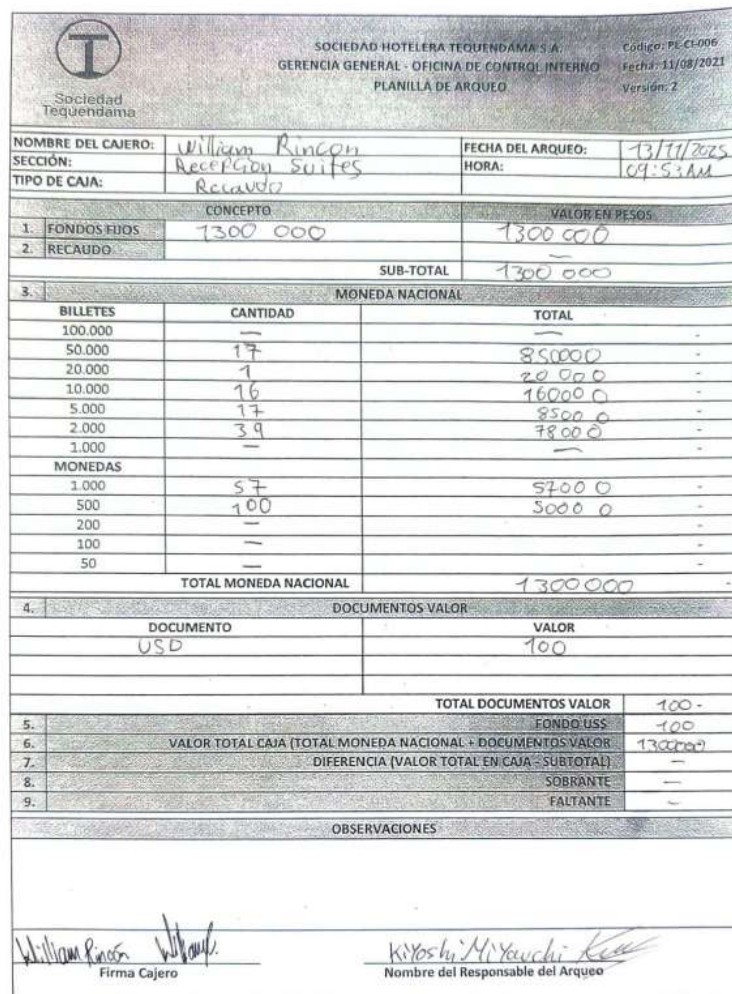 SOCIEDAD HOTELERA TEQUENDAMA S.A.
GERENCIA GENERAL - OFICINA DE CONTROL INTERNO
PLANILLA DE ARQUEO
Código: PE-CI-006
Fecha: 11/08/2021
Versión: 2
Sociedad
Tequendama
NOMBRE DEL CAJERO: William Rincon FECHA DEL ARQUEO: 13/11/2025
SECCIÓN: Recepcion Suites HORA: 09:53 AM
TIPO DE CAJA: Recaudo
CONCEPTO VALOR EN PESOS
1. FONDOS FIJOS 1300 000 1300 000
2. RECAUDO —
SUB-TOTAL 1300 000
3. MONEDA NACIONAL
BILLETES CANTIDAD TOTAL
100.000 — — -
50.000 17 850000 -
20.000 1 20 000 -
10.000 16 160000 -
5.000 17 85000 -
2.000 39 78000 -
1.000 — — -
MONEDAS
1.000 57 57000 -
500 100 50000 -
200 — -
100 — -
50 — -
TOTAL MONEDA NACIONAL 1300000 -
4. DOCUMENTOS VALOR
DOCUMENTO VALOR
USD 100
TOTAL DOCUMENTOS VALOR 100 -
5. FONDO US$ 100
6. VALOR TOTAL CAJA (TOTAL MONEDA NACIONAL + DOCUMENTOS VALOR 1300000
7. DIFERENCIA (VALOR TOTAL EN CAJA - SUBTOTAL) —
8. SOBRANTE —
9. FALTANTE —
OBSERVACIONES
William Rincón
Kiyoshi Miyauchi
Firma Cajero Nombre del Responsable del Arqueo